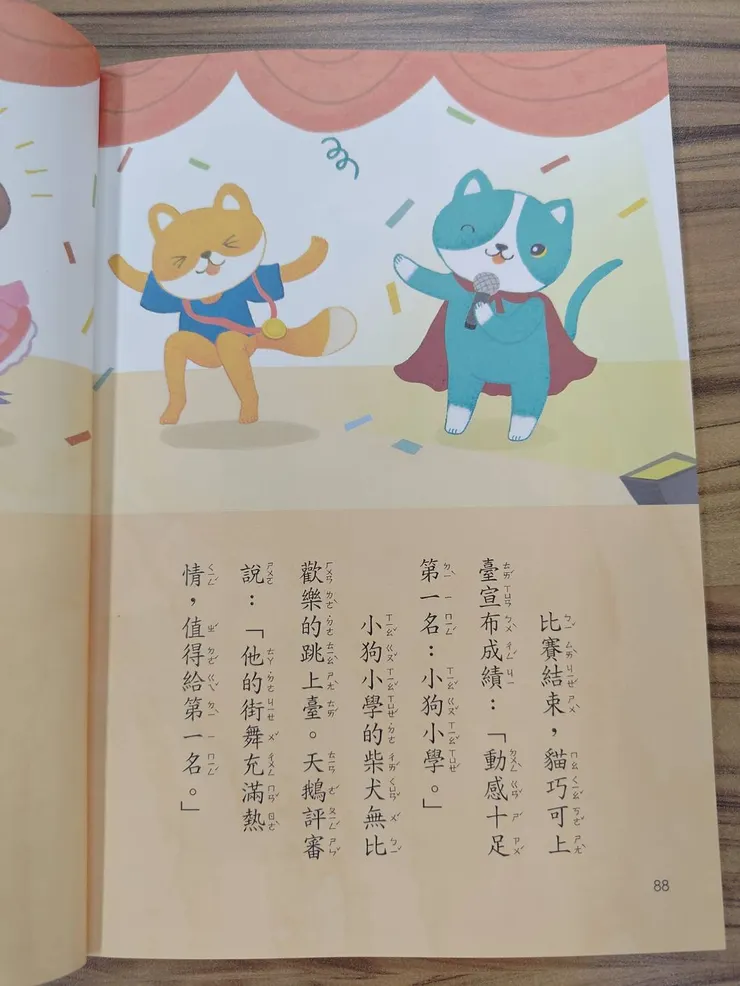 比賽結束，貓巧可上
臺宣布成績：「動感十足
第一名：小狗小學。」
小狗小學的柴犬無比
歡樂的跳上臺。天鵝評審
說：「他的街舞充滿熱
情，值得給第一名。」
88